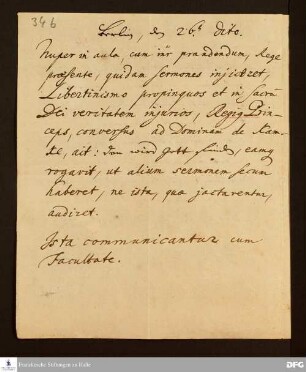 346
Berlin, den 26.t dito.
Nuper in aula, cum inter prandendum, Rege
præsente, quidam sermones injiceret,
Libertinismo propinquos et in sacram
Dei veritatem injurios, Regiq Prin-
ceps, conversus ad Dominam de Kam-
ke, ait: dan wird Gott finden, eamq
rogavit, ut alium sermonem secum
haberet, ne ista, quæ jactarentur,
audiret.
Ista communicantur cum
Facultate.
Franckesche Stiftungen zu Halle
DFG